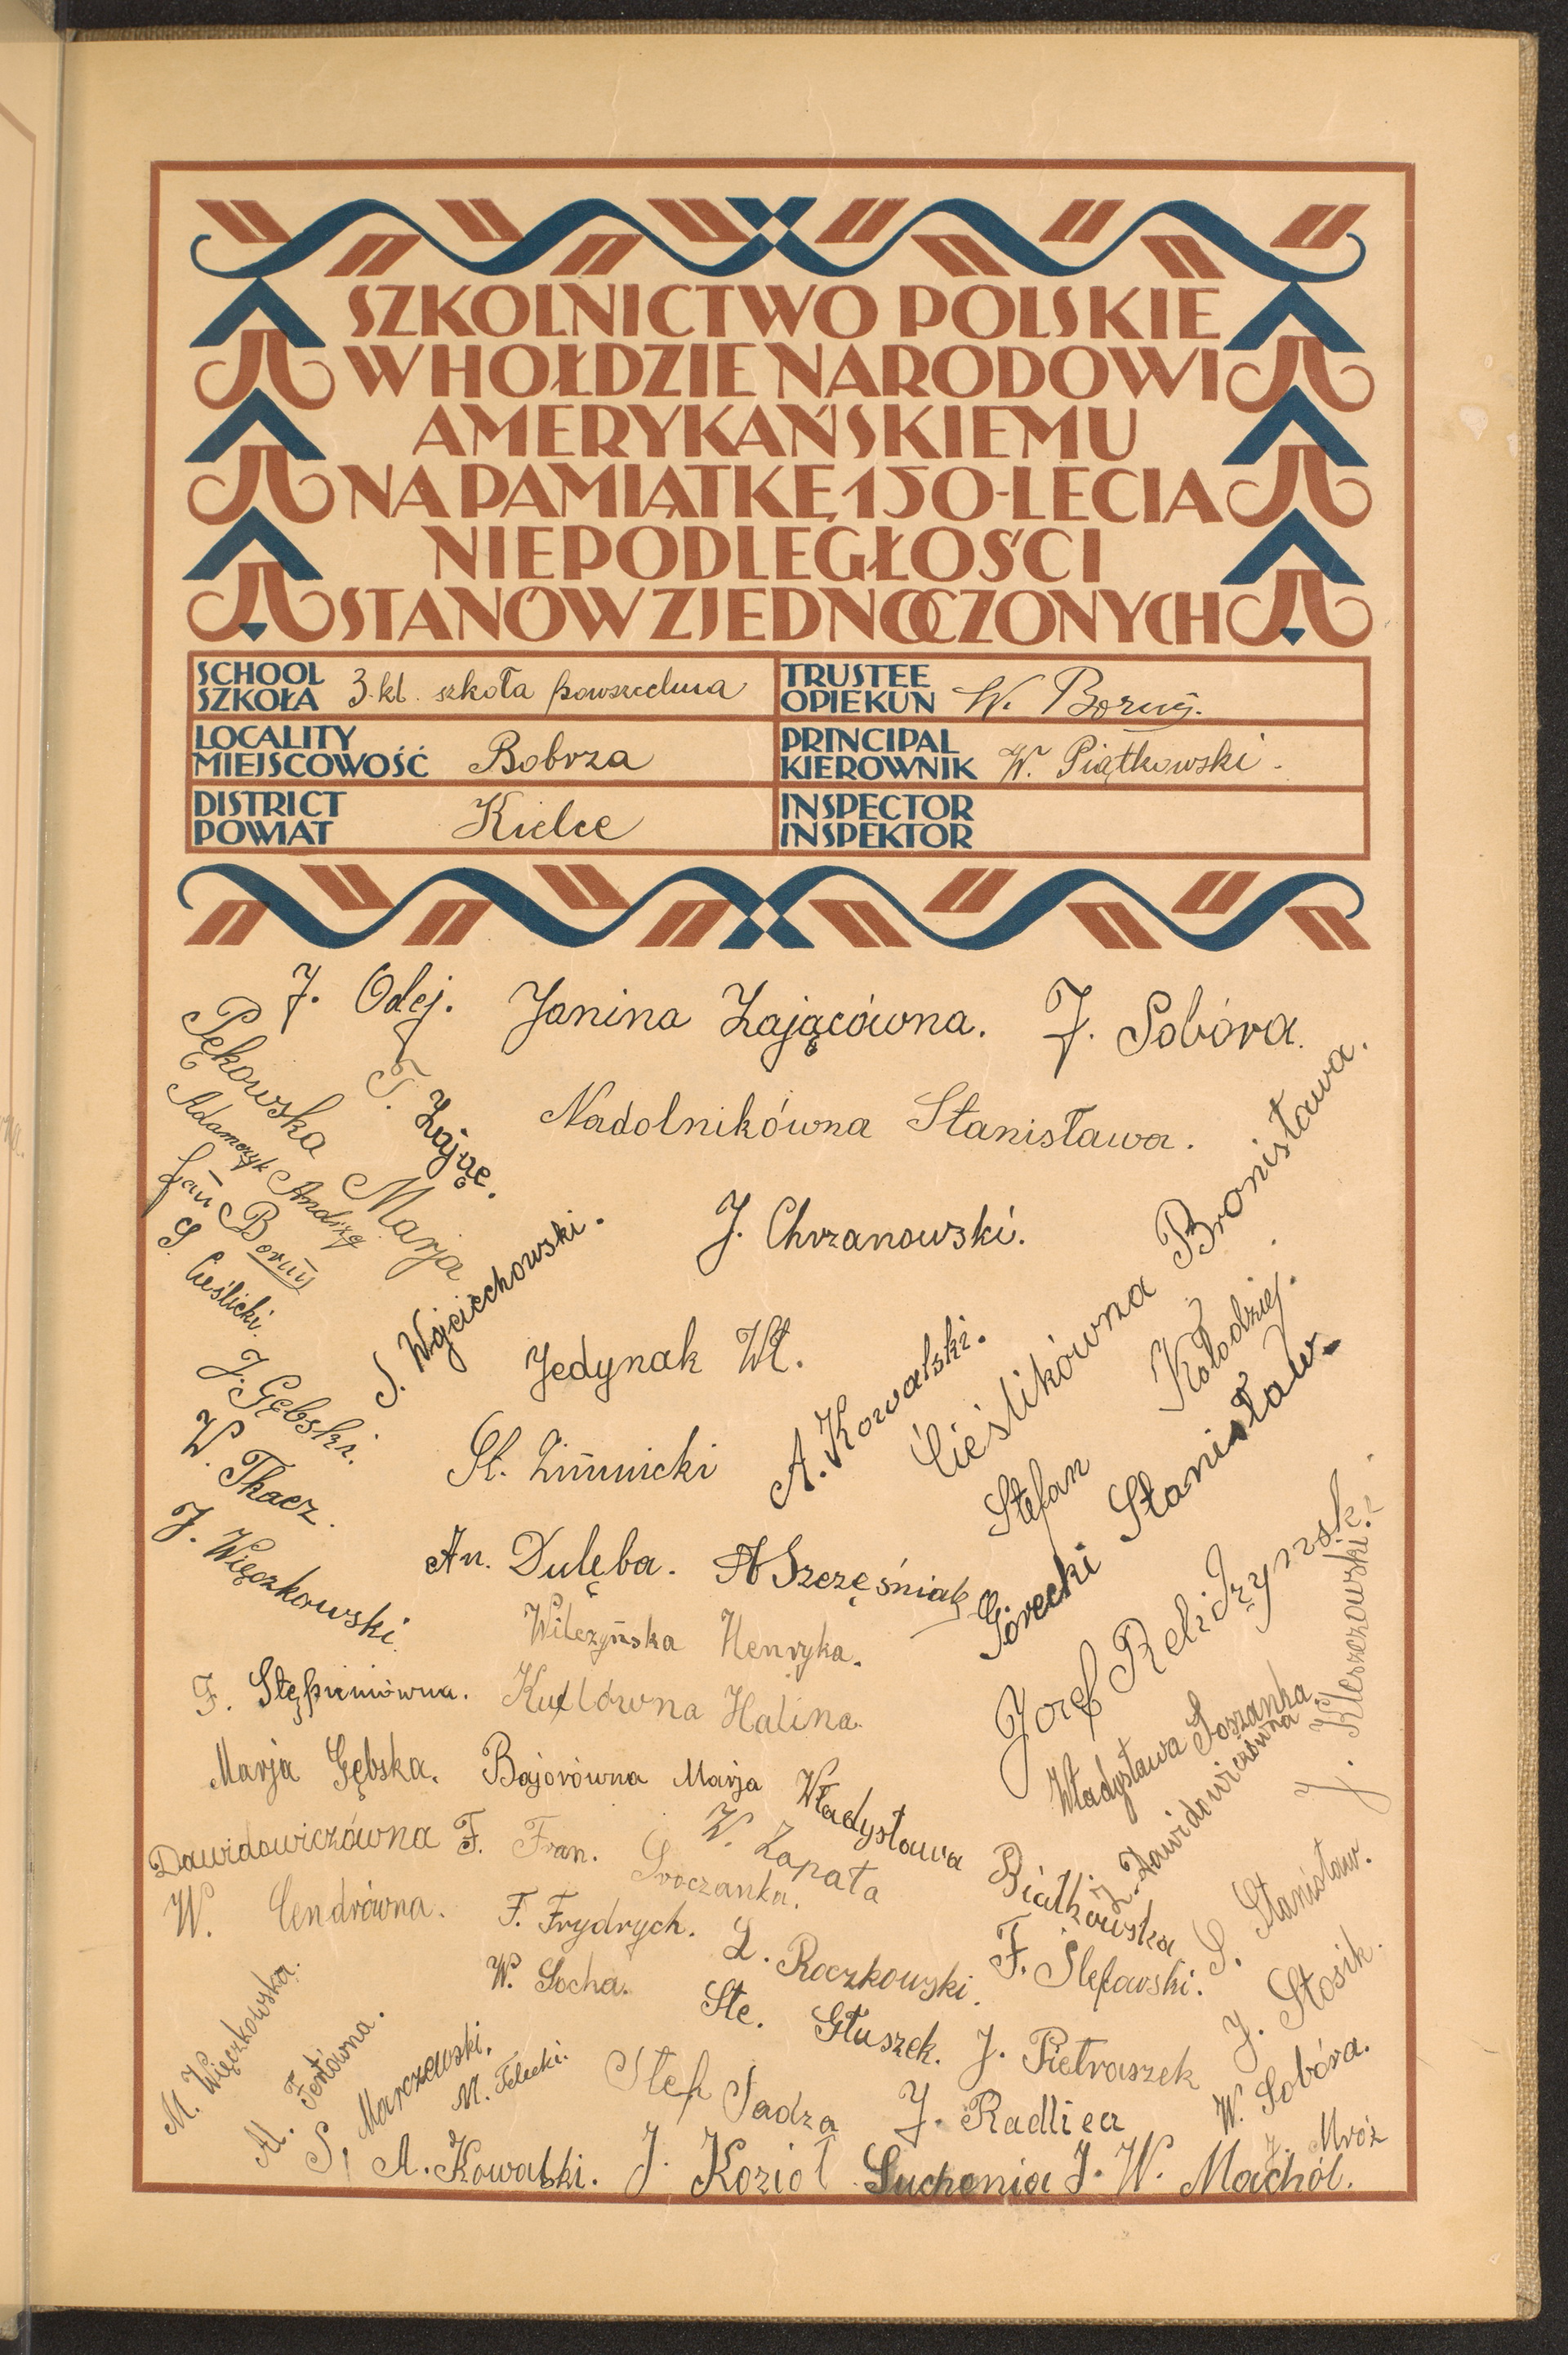 SZKOLNICTWO POLSKIE
W HOŁDZIE NARODOWI
AMERYKAŃSKIEMU
NA PAMIĄTKĘ 150-LECIA
NIEPODLEGŁOŚCI
STANÓW ZJEDNOCZONYCH
SCHOOL
SZKOŁA
3-kl. szkoła powszechna
TRUSTEE
OPIEKUN
W. Boruń.
LOCALITY
MIEJSCOWOŚĆ
Bobrza
PRINCIPAL
KIEROWNIK
W. Piątkowski.
DISTRICT
POWIAT
Kielce
INSPECTOR
INSPEKTOR
J. Odej.
Janina Zającówna.
J. Sobóra.
Pękowska Marja
T. Zając.
Nadolnikówna Stanisława.
Adamczyk Andrzej
Jan Boruń
S. Cieślicki.
J. Chrzanowski.
S. Wojciechowski.
Cieślikówna Bronisława.
J. Gębski.
Jedynak Wł.
A. Kowalski.
Stefan Kołodziej.
W. Tkacz.
St. Zimnicki
Górecki Stanisław.
J. Więczkowski.
An. Dulęba.
A Szczęśniak
Wilczyńska Henryka.
Józef
F. Stępniówna.
Halina.
J. Kleszczowski.
Władysława Soszanka
Marja Gębska.
Bajorówna Marja
Władysława Białkowska
Z. Dawidowiczówna
Dawidowiczówna F.
Fran. Sroczanka.
W. Zapała
W. Cendrówna.
F. Frydrych.
L. Roczkowski.
F. Ślefarski.
S. Stanisław.
M. Więczkowska.
W. Socha.
Ste. Głuszek.
J. Pietraszek
J. Stosik.
M.
S. Marczewski.
M.
Stef Sadza
J. Radlica
W. Sobóra.
J. Mróz
A. Kowalski.
J. Kozioł
Suchenia J.
W. Machól.